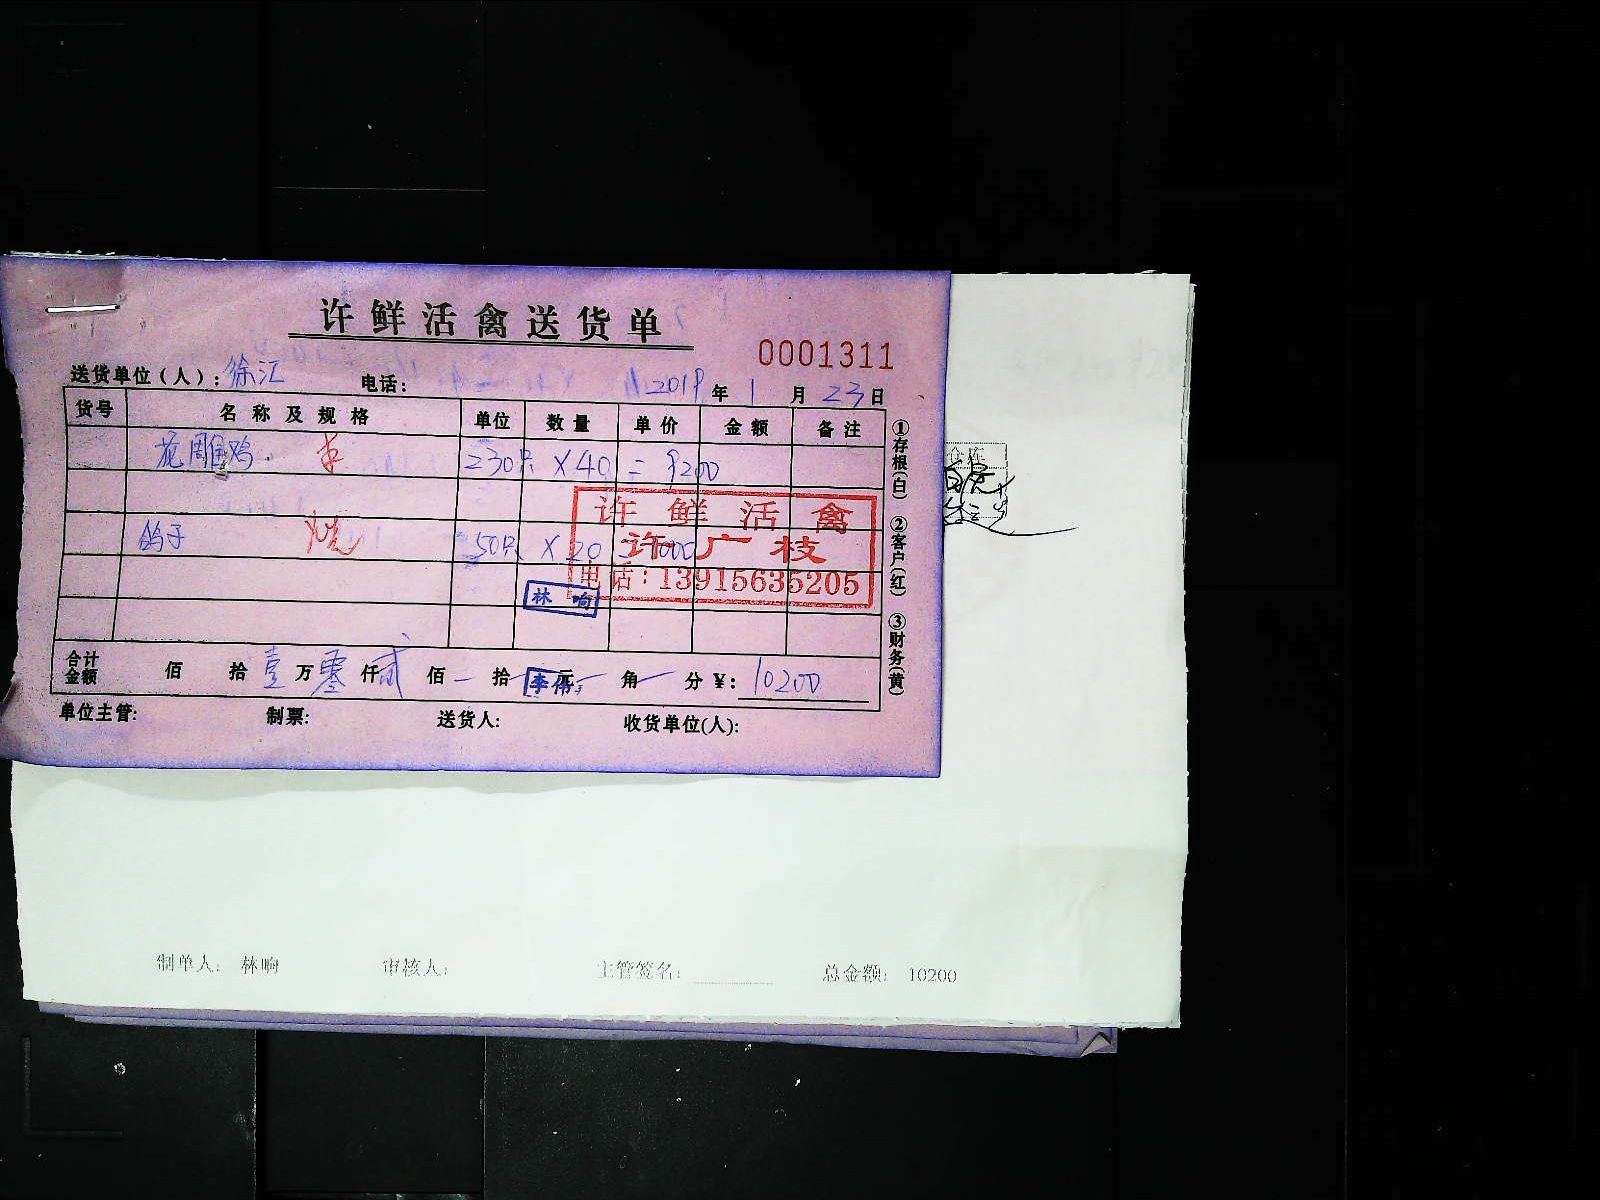 许鲜活禽送货单
0001311
送货单位(人): 徐汇 电话: 2019 年 1 月 23 日
货号 名称及规格 单位 数量 单价 金额 备注
花雕鸡 230只 ×40 = 9200
许鲜活禽
鸽子 50只 ×20 = 1000
许广枝
电话:13915635205
林响
合计金额 佰 拾 壹 万 零 仟 贰 佰 拾 元 角 分 ¥: 10200
李伟
单位主管: 制票: 送货人: 收货单位(人):
①存根(白) ②客户(红) ③财务(黄)
仓库
制单人: 林响 审核人: 主管签名: 总金额: 10200